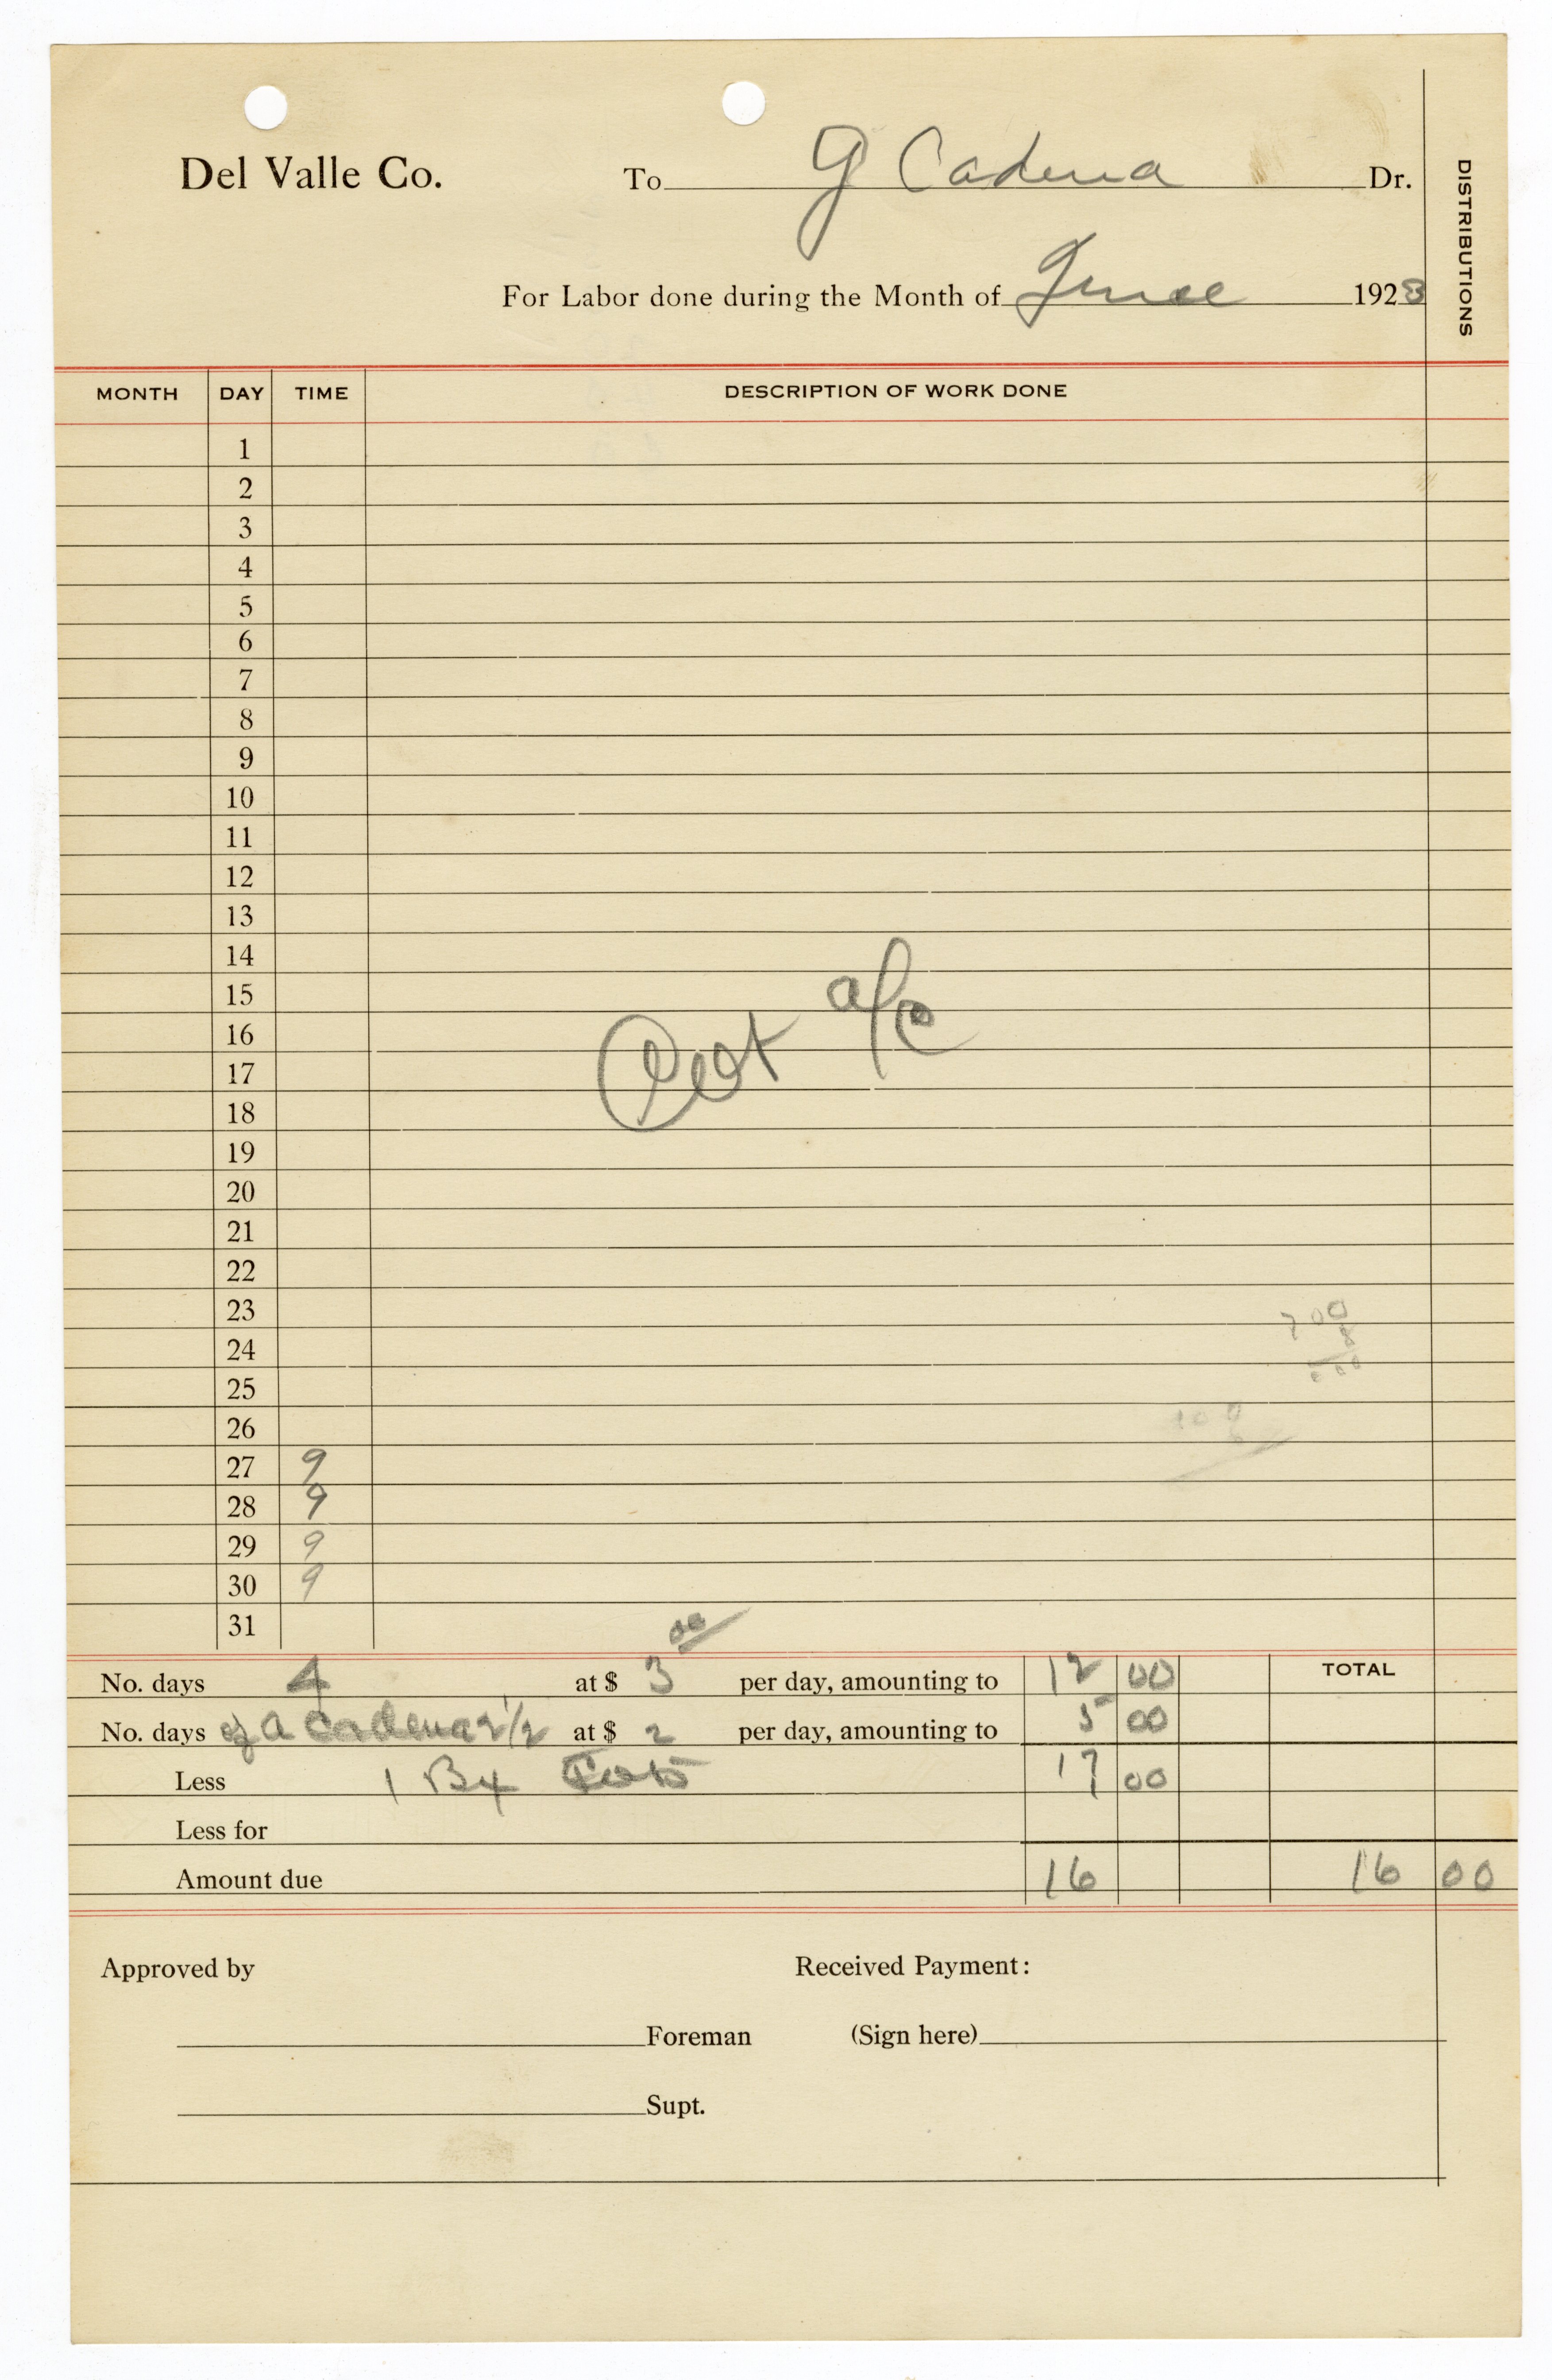 Del Valle Co. To G Cadena Dr.
For Labor done during the Month of June 1923
DISTRIBUTIONS
MONTH DAY TIME DESCRIPTION OF WORK DONE
1
2
3
4
5
6
7
8
9
10
11
12
13
14
15
a/c
16
17
18
19
20
21
22
23
24
25
26
27 9
28 9
29 9
30 9
31
No. days 4 at $ 3 00 per day, amounting to 12 00 TOTAL
No. days of a Cadena 2 1/2 at $ 2 per day, amounting to 5 00
Less 1 Bx 17 00
Less for
Amount due 16 16 00
Approved by Received Payment:
Foreman (Sign here)
Supt.